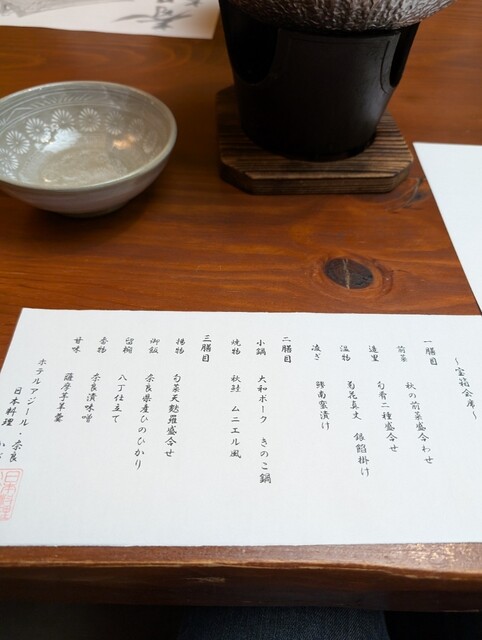 ～宝箱会席～
一膳目
前菜 秋の前菜盛合わせ
造里 旬肴二種盛合せ
温物 菊花真丈 銀餡掛け
凌ぎ 鰹南蛮漬け
二膳目
小鍋 大和ポーク きのこ鍋
焼物 秋鮭 ムニエル風
三膳目
揚物 旬菜天麩羅盛合せ
御飯 奈良県産ひのひかり
留椀 八丁仕立て
香物 奈良漬味噌
甘味 薩摩芋羊羹
ホテルアジール・奈良
日本料理
日本料理